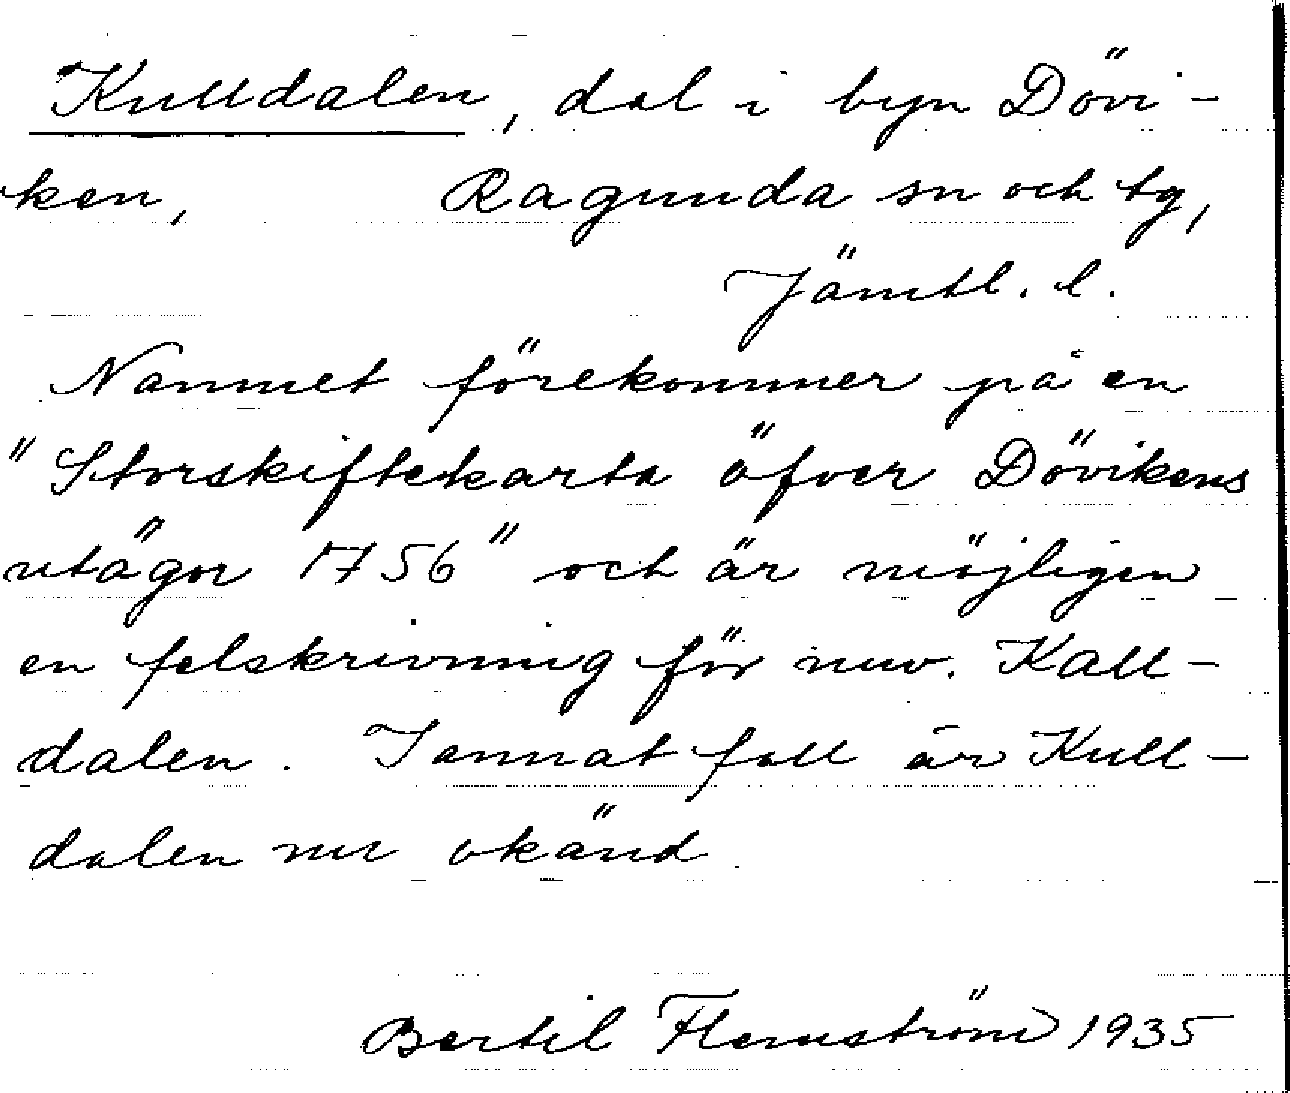 Kulldalen, dal i byn Dövi-
ken, Ragunda sn och tg,
Jämtl. l.
Namnet förekommer på en
"Storskiftekarta öfver Dövikens
utägor 1756" och är möjligen
en felskrivning för nuv. Kall-
dalen. I annat fall är Kull-
dalen nu okänd.
Bertil Flemström 1935